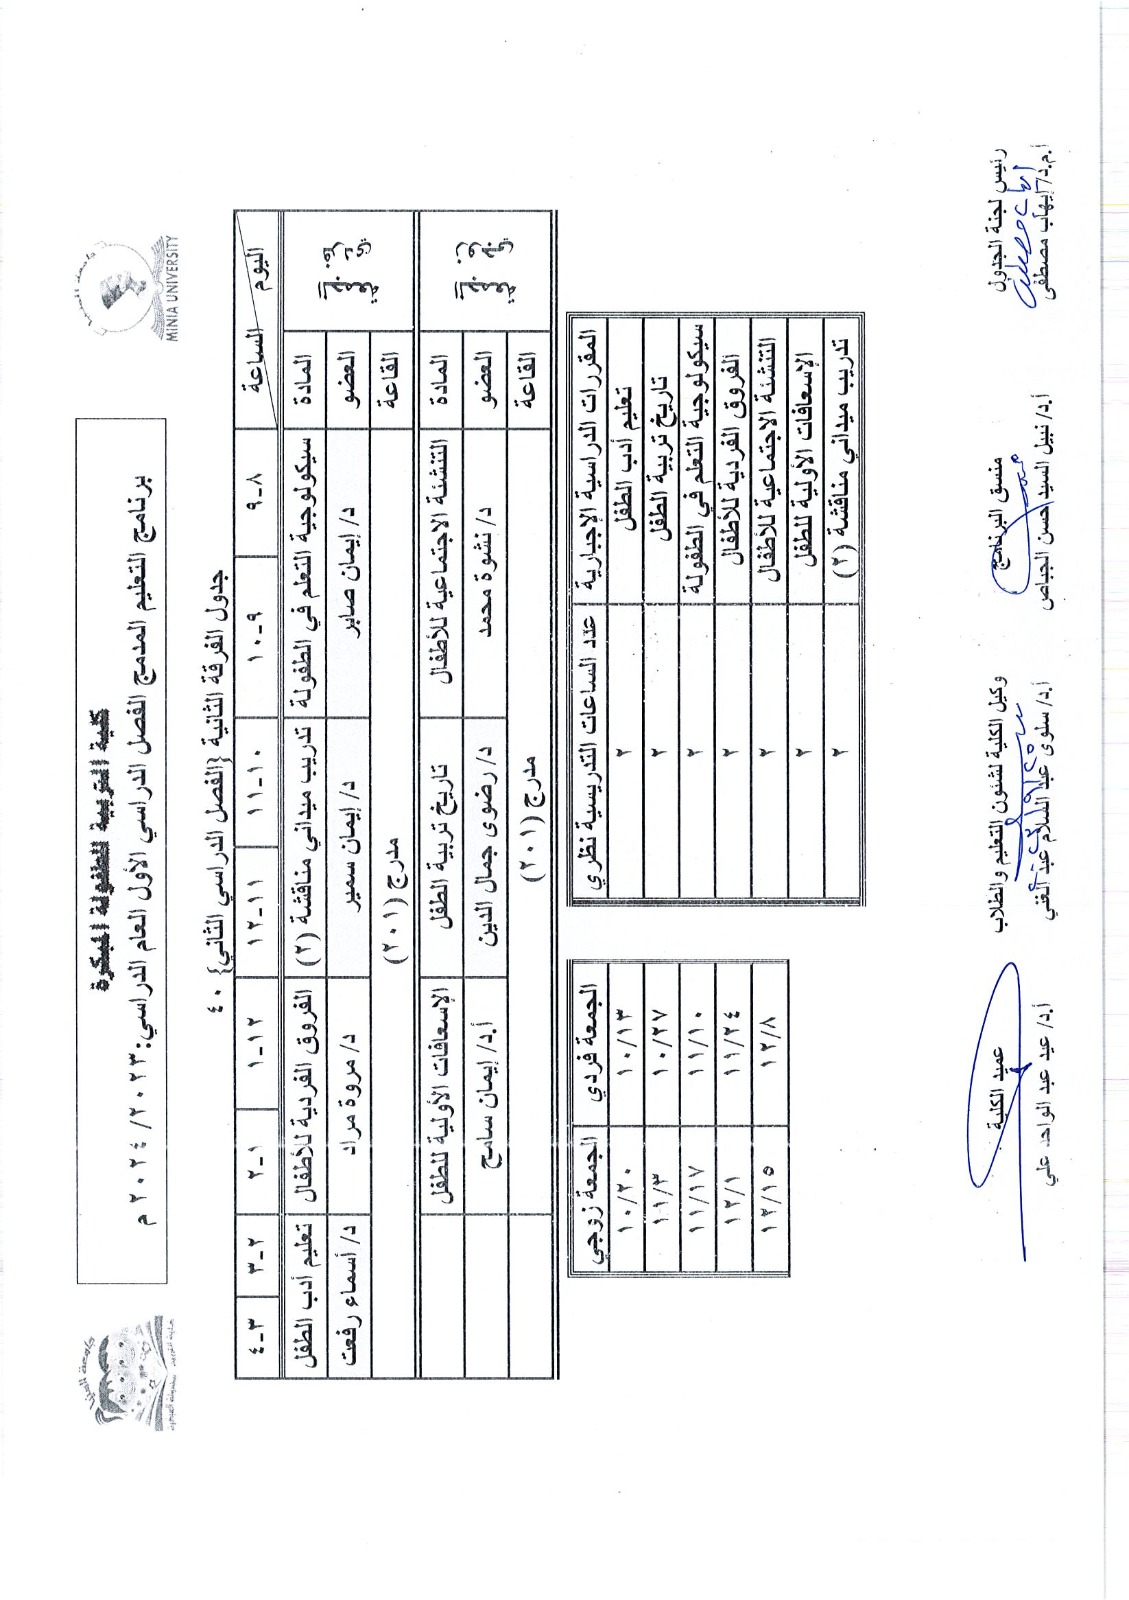 MINIA UNIVERSITY
كلية التربية للطفولة المبكرة
برنامج التعليم المدمج الفصل الدراسي الأول العام الدراسي: ٢٠٢٣/ ٢٠٢٤ م
جدول الفرقة الثانية {الفصل الدراسي الثاني} ٤٠
اليوم الساعة ٨-٩ ٩-١٠ ١٠-١١ ١١-١٢ ١٢-١ ١-٢ ٢-٣ ٣-٤
المادة سيكولوجية التعلم في الطفولة تدريب ميداني مناقشة (٢) الفروق الفردية للأطفال تعليم أدب الطفل
العضو د/ إيمان صابر د/ إيمان سمير د/ مروة مراد د/ أسماء رفعت
القاعة مدرج (٢٠١)
المادة التنشئة الاجتماعية للأطفال تاريخ تربية الطفل الإسعافات الأولية للطفل
العضو د/ نشوة محمد د/ رضوى جمال الدين أ.د/ إيمان سامح
القاعة مدرج (٢٠١)
المقررات الدراسية الإجبارية عدد الساعات التدريسية نظري
تعليم أدب الطفل ٢
تاريخ تربية الطفل ٢
سيكولوجية التعلم في الطفولة ٢
الفروق الفردية للأطفال ٢
التنشئة الاجتماعية للأطفال ٢
الإسعافات الأولية للطفل ٢
تدريب ميداني مناقشة (٢) ٢
الجمعة فردي الجمعة زوجي
١٠/١٣ ١٠/٢٠
١٠/٢٧ ١١/٣
١١/١٠ ١١/١٧
١١/٢٤ ١٢/١
١٢/٨ ١٢/١٥
رئيس لجنة الجدول منسق البرنامج وكيل الكلية لشئون التعليم والطلاب عميد الكلية
أ.م.د/ إيهاب مصطفى أ.د/ نبيل السيد حسن الجباص أ.د/ سلوى عبد السلام عبد الغني أ.د/ عيد عبد الواحد علي